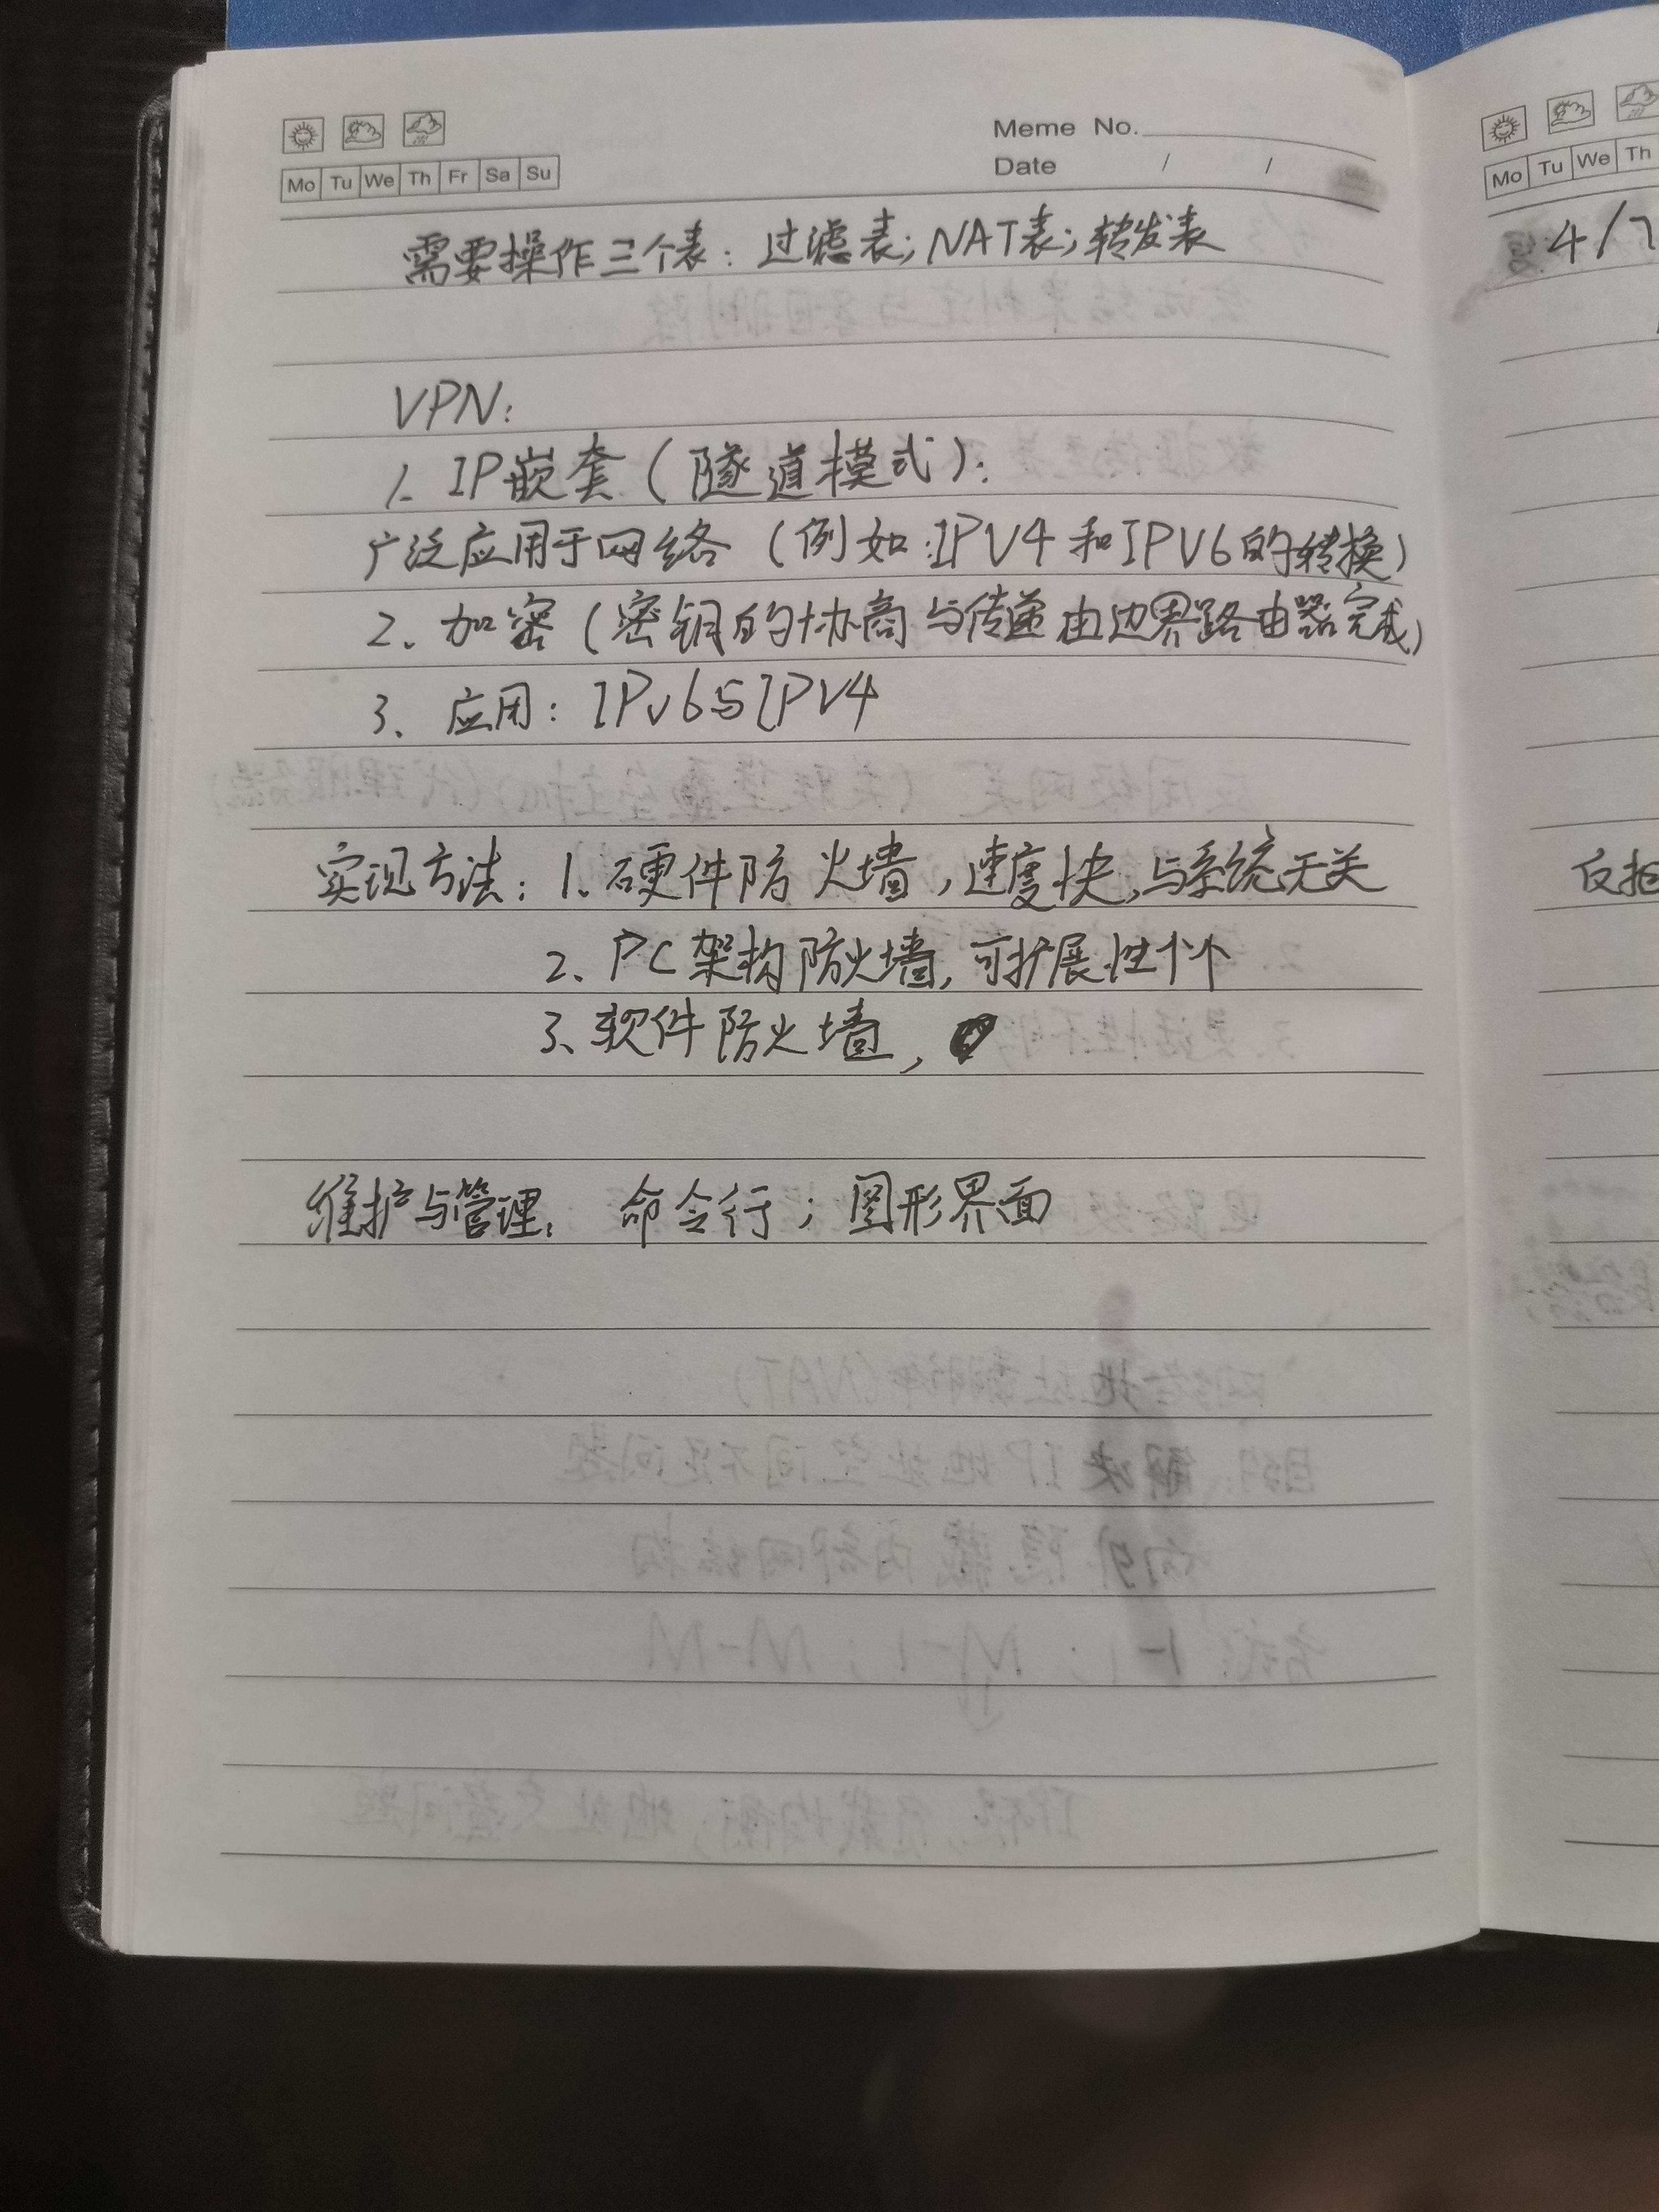 Meme No.
Date / /
Mo Tu We Th Fr Sa Su
需要操作三个表：过滤表；NAT表；转发表
VPN：
1. IP嵌套（隧道模式）：
广泛应用于网络（例如：IPV4和IPV6的转换）
2、加密（密钥的协商与传递由边界路由器完成）
3、应用：IPv6与IPV4
实现方法：1、硬件防火墙，速度快，与系统无关
2、PC架构防火墙，可扩展性个个
3、软件防火墙，
维护与管理： 命令行；图形界面
Mo Tu We Th
4/7